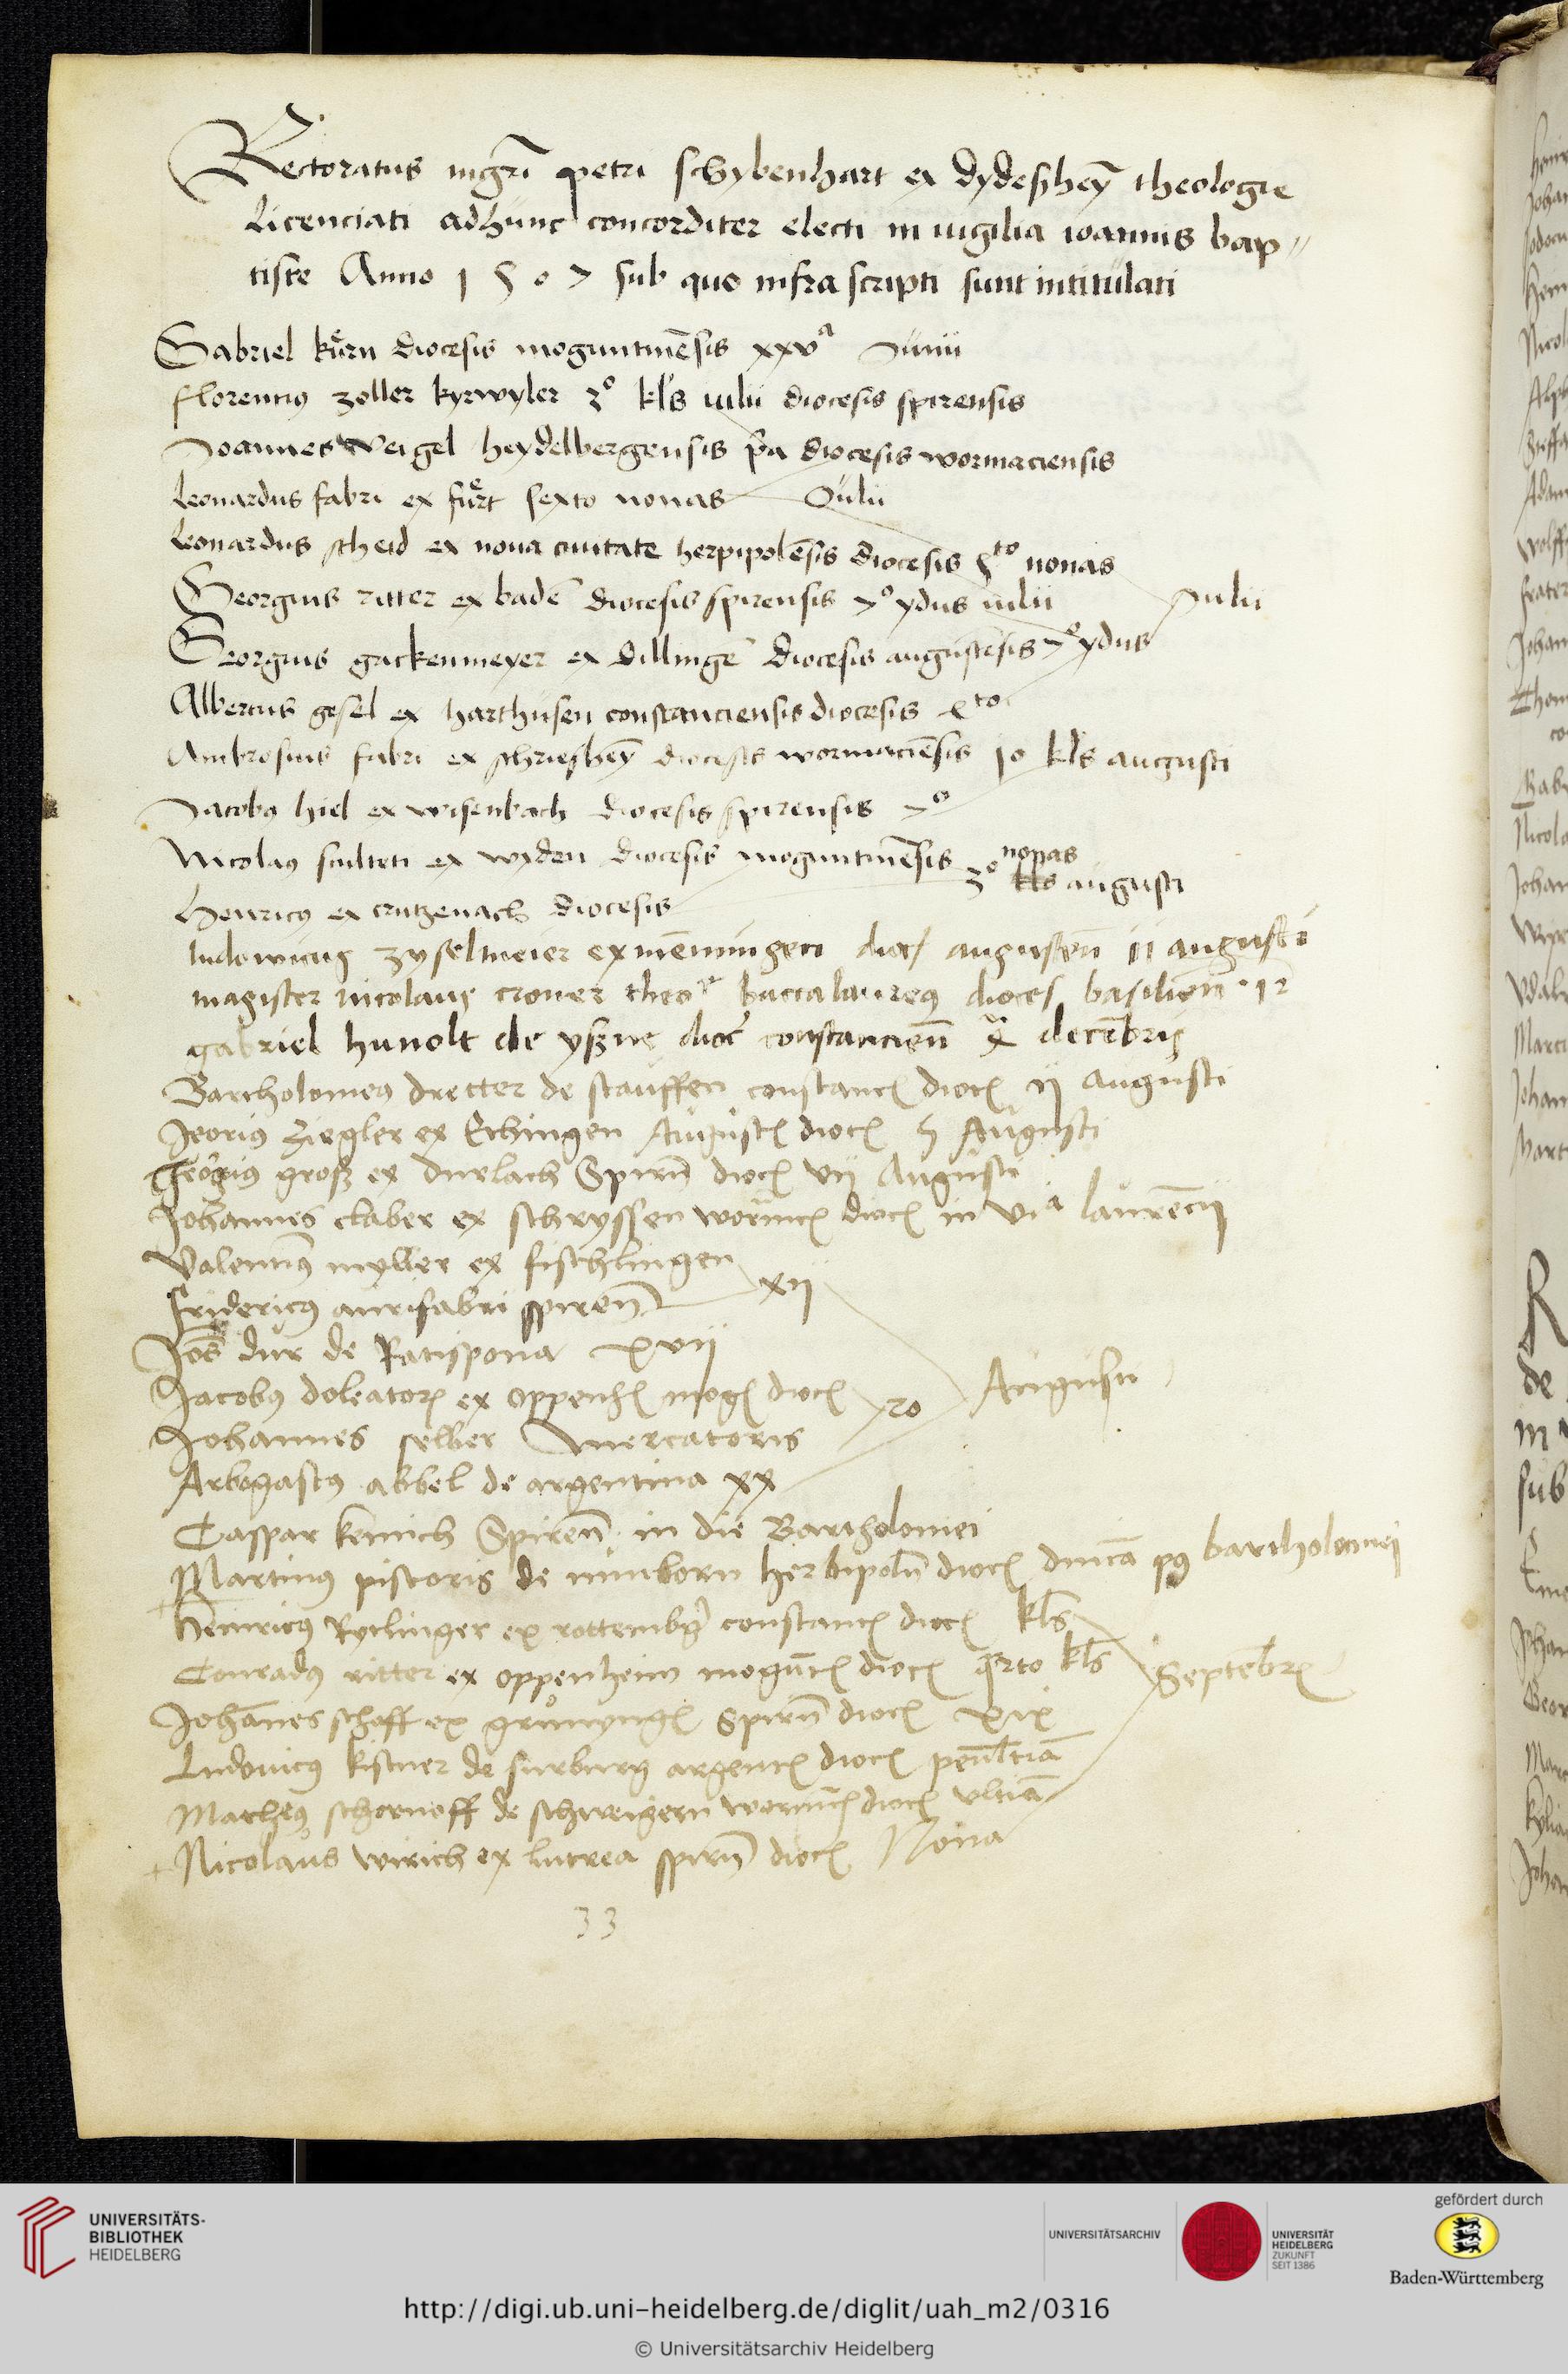 Rectoratus mgr̄i petri schybenhart ex dydeßheȳ theologie
licenciati adhunc concorditer electi in uigilia ioannis bap〃
tiste Anno 1507 sub quo infra scripti sunt intitulati
Gabriel kürn diocesis moguntinēsis xxvᵃ Junii
florentiꝰ zoller kyrwyler 3° kl's iulii diocesis spirensis
Joannes Weigel heydelbergensis pⁱa diocesis wormaciensis
leonardus fabri ex fürt sexto nonas Julii
Leonardus scheid ex noua ciuitate herpipolēsis diocesis 5to nonas
Georgius ritter ex badē diocesis spirensis 7° ydus iulii Julii
Georgius guckenmeyer ex dillingē diocesis augustēsis 7° ydus
Albertus gesel ex harthusen constanciensis diocesis xto
Ambrosius fabri ex schrießheȳ diocesis wormaciēsis 10 kl's augusti
Jacobꝰ hiel ex wisenbach diocesis spirensis 7°
Nicolaꝰ sculteti ex wyden diocesis moguntinēsis 3° nonas
kls augusti
Henricꝰ ex crutzenach diocesis
ludowicus zyselmeier ex mēmingen dioc augusten̄ 11 augusti
magister nicolaus croner theoᵉ baccalaureꝰ dioces basilien̄ 12
gabriel hunolt de yßne dioc̄ constancien̄ decēbris
Bartholomeꝰ dretter de stauffen constanc̄ dioc̄ ij augusti
Jeoriꝰ Ziegler ex Ethingen Augustē dioc̄ 5 Augusti
Georgiꝰ groß ex durlach Spirn̄ dioc̄ vij Augusti
Johannes claber ex schryssen wormac̄ dioc̄ in viᵃ laurēcij
Valentinꝰ myller ex fischlingen
xij
fridericꝰ aurifabri spiren̄
Joēs dür de Ratispona xvij
Jacobꝰ doleatorꝭ ex oppenhꝭ mogꝭ dioc̄ 20 Augusti
Johannes selber mercatoris
Arbogastꝰ abbel de argentina xx
Caspar kemich Spiren̄ in die Bartholomei
Martinꝰ pistoris de nunborn herbipoln̄ dioc̄ dnicā pꝰ bartholomei
+ Heinricꝰ Rytlinger ex rottemb̄g constanc̄ dioc̄ kl̄s
Conradꝰ ritter ex oppenheim mogūtꝭ dioc̄ qrto kl̄s Septēbrꝭ
Johānes schoff ex grünyngꝭ Spirn̄ dioc̄ xix
Ludouicꝰ kistner de surburg argentꝭ dioc̄ penl̄tīa
Matheꝰ schornoff de schweigern wormac̄ dioc̄ vltīa
+ Nicolaus wirich ex lutrea spirn̄ dioc̄ Nona
33
UNIVERSITÄTS-
BIBLIOTHEK
HEIDELBERG
UNIVERSITÄTSARCHIV
UNIVERSITÄT
HEIDELBERG
ZUKUNFT
SEIT 1386
gefördert durch
Baden-Württemberg
http://digi.ub.uni-heidelberg.de/diglit/uah_m2/0316
© Universitätsarchiv Heidelberg